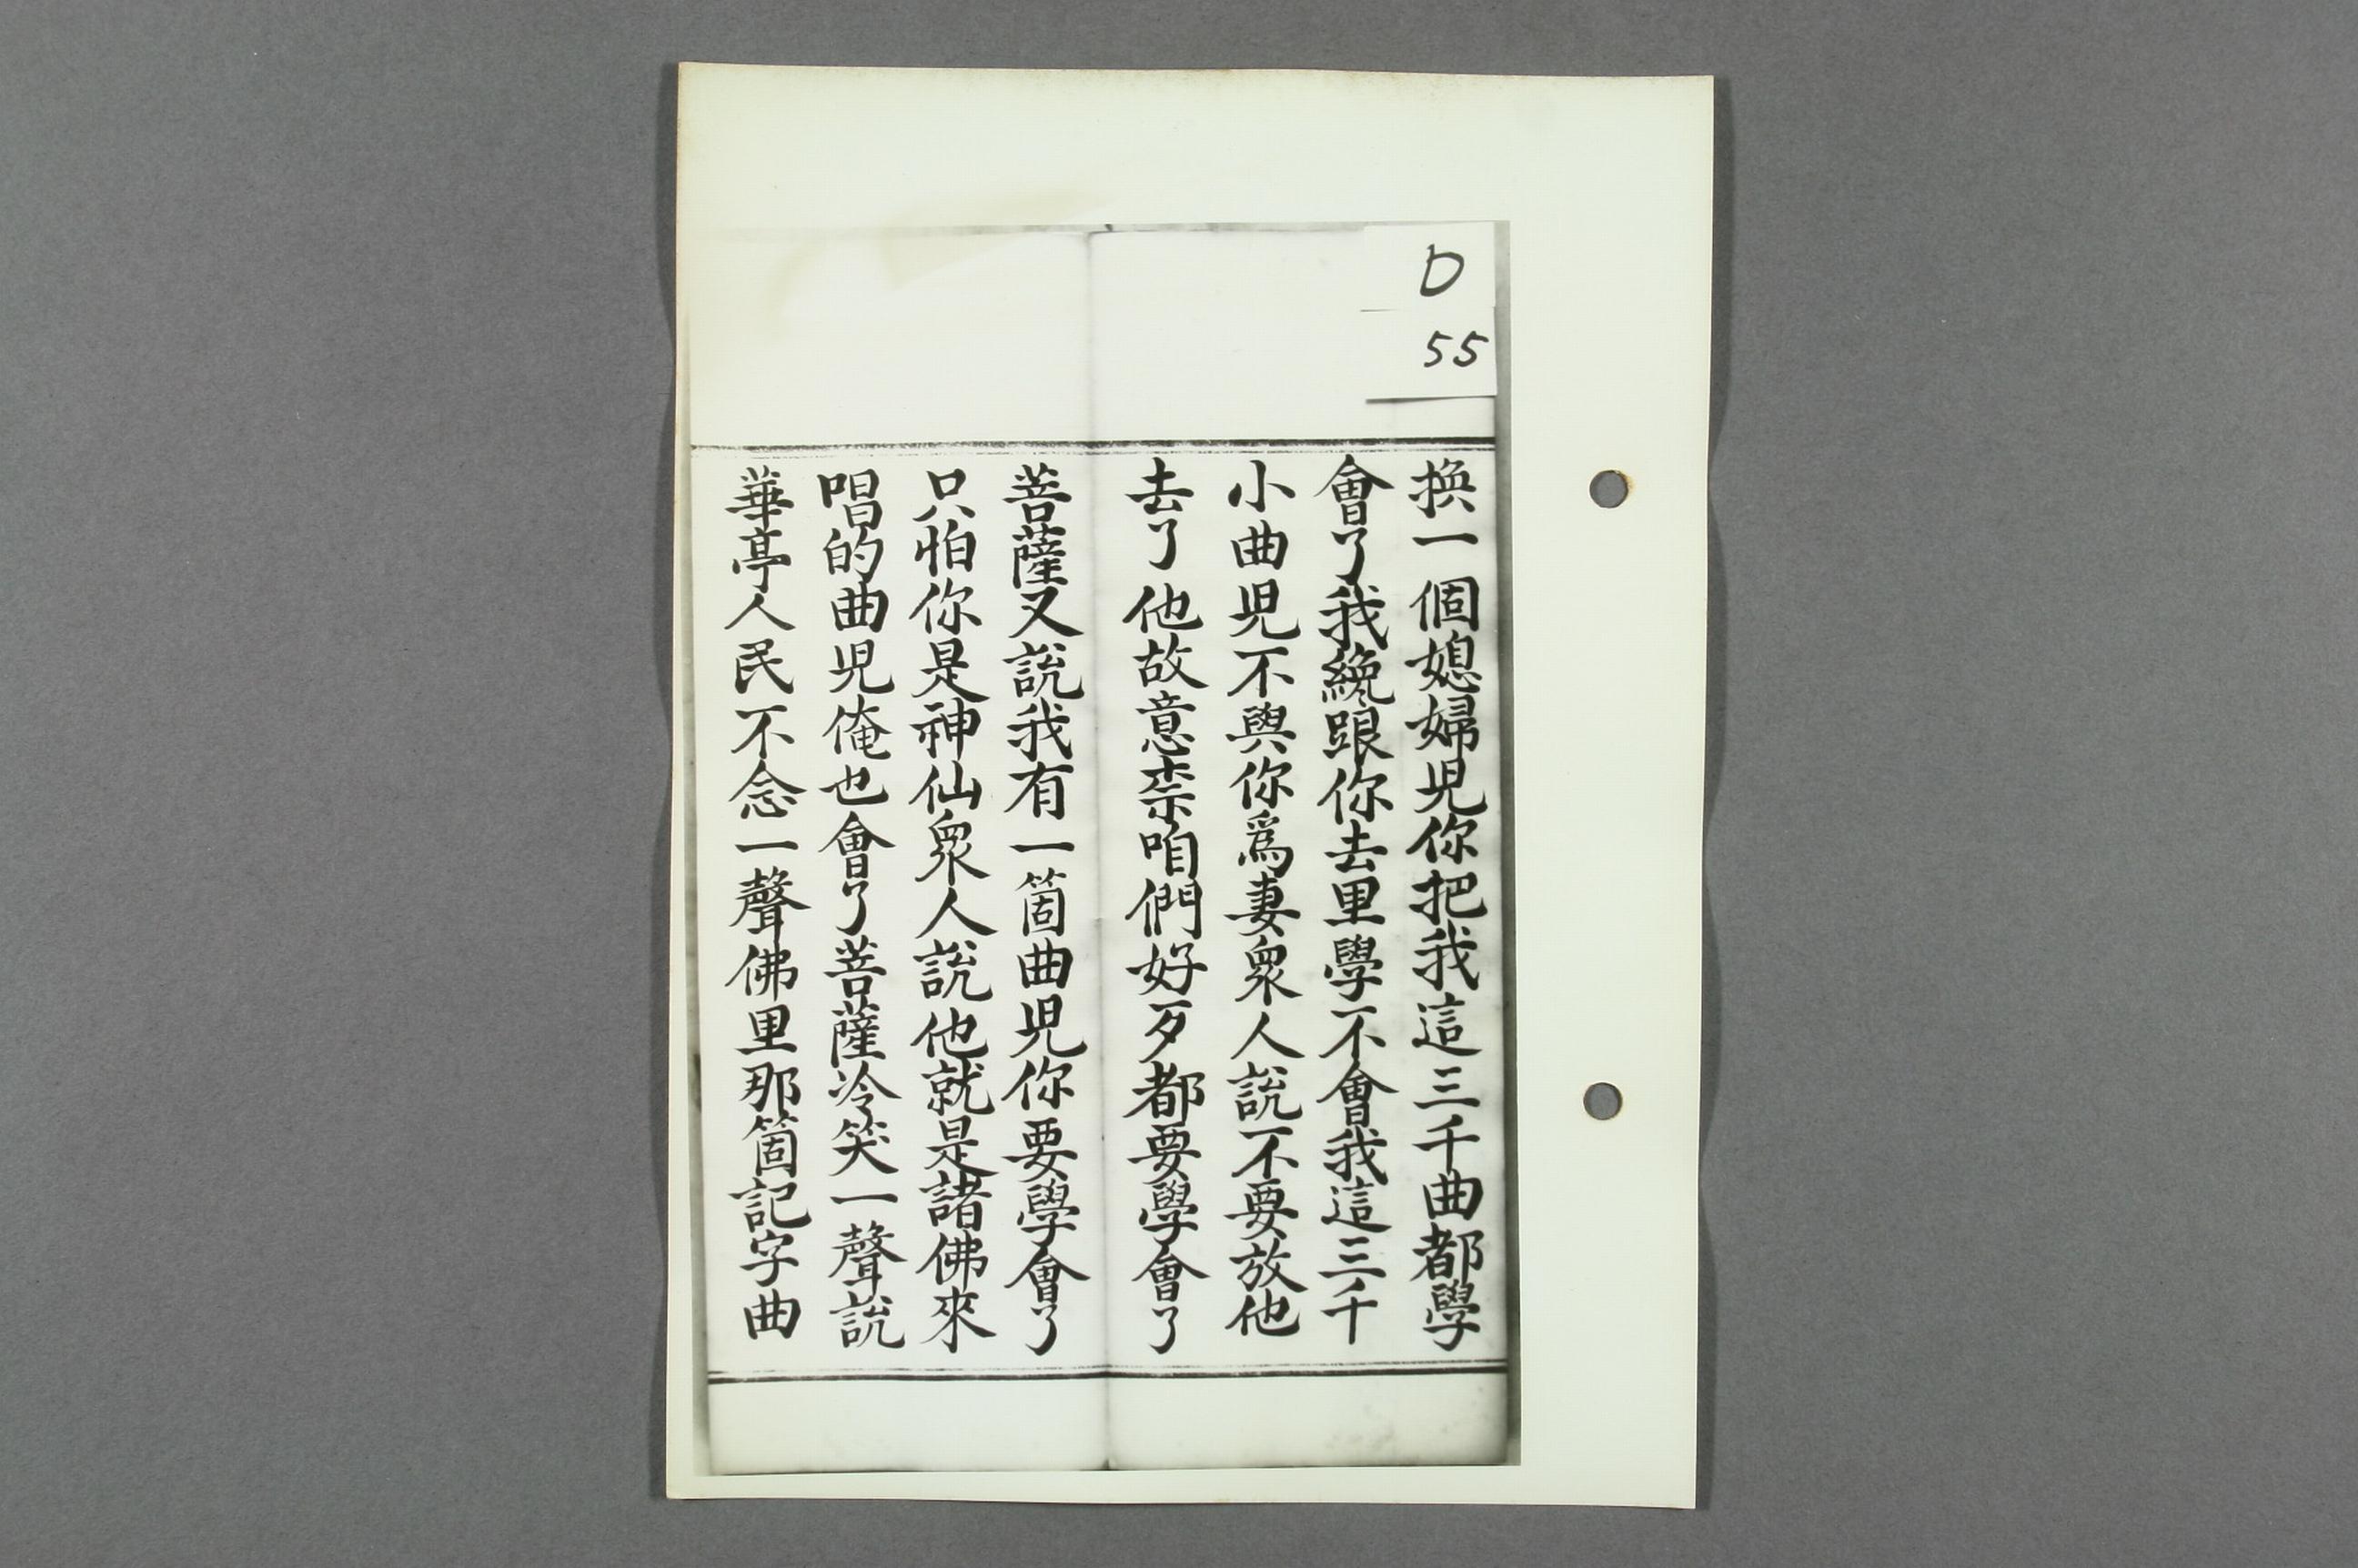 D
55
换一個媳婦児你把我這三千曲都學
會了我纔跟你去里學不會我這三千
小曲児不與你爲妻衆人説不要放他
去了他故意柰咱們好歹都要學會了
菩薩又説我有一箇曲児你要學會了
只怕你是神仙衆人説他就是諸佛來
唱的曲児俺也會了菩薩冷笑一聲説
華亭人民不念一聲佛里那箇記字曲